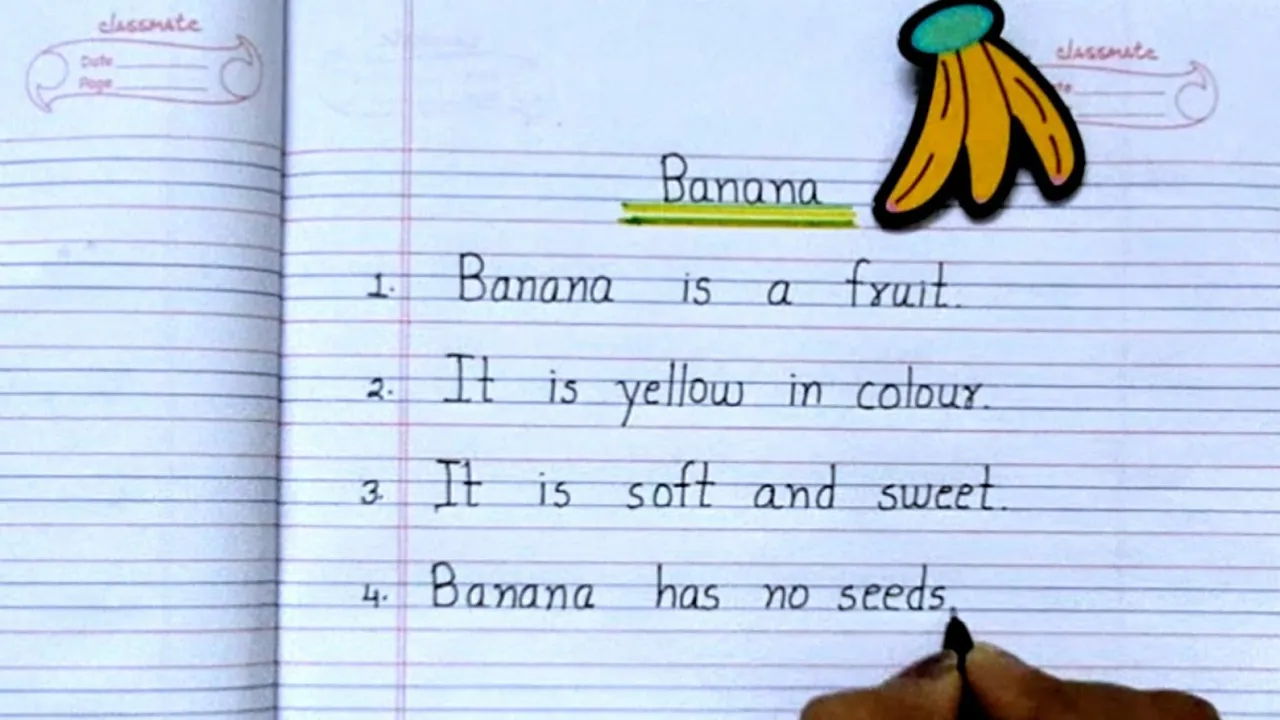 classmate
Date
Page
classmate
Banana
1. Banana is a fruit.
2. It is yellow in colour.
3. It is soft and sweet.
4. Banana has no seeds.